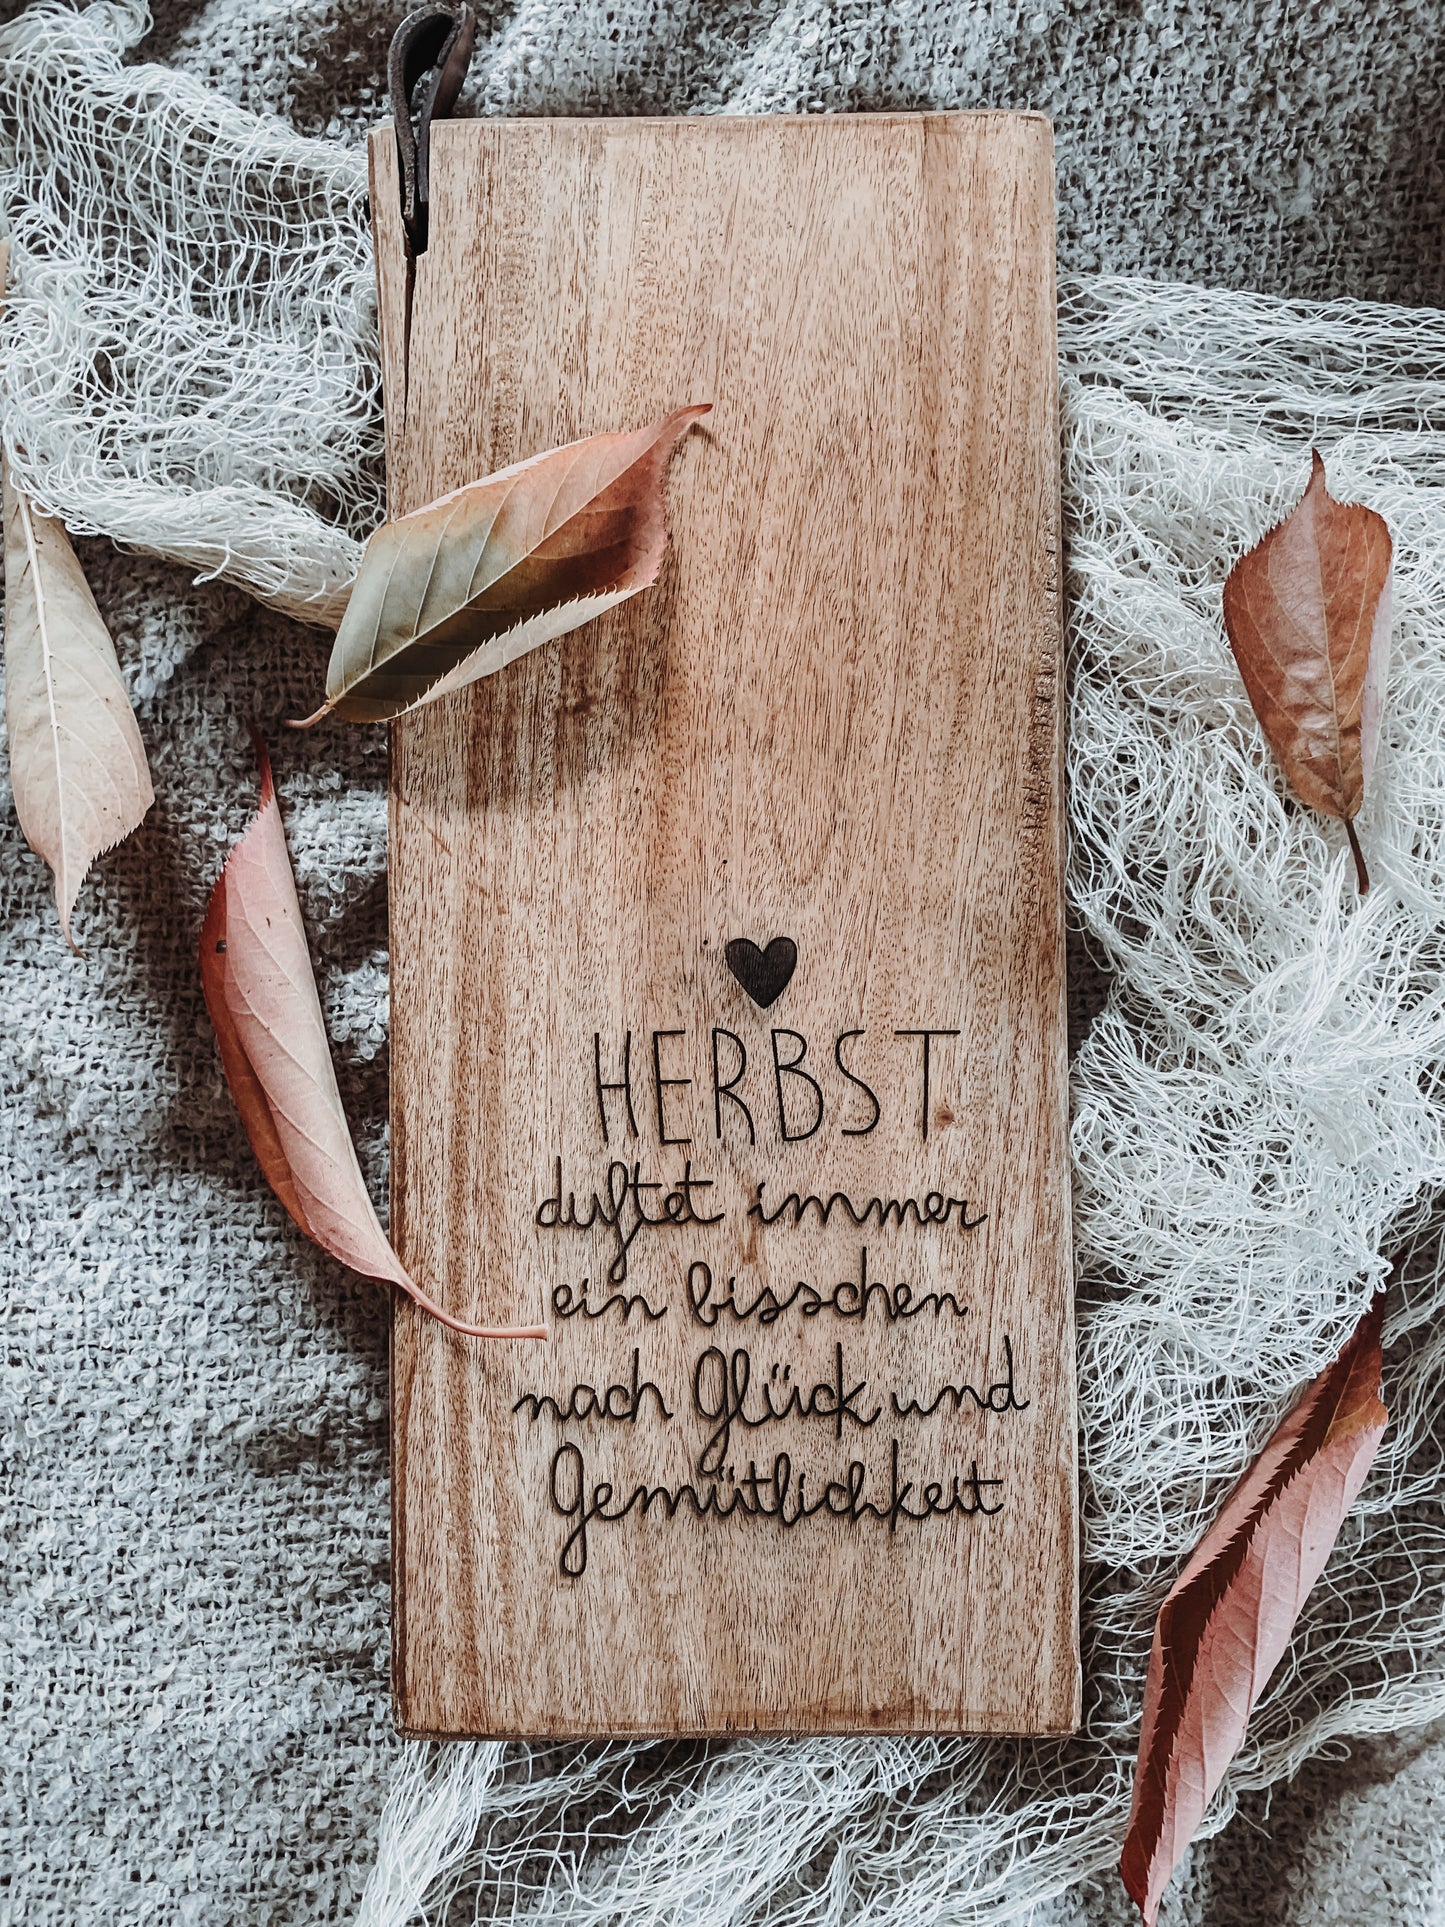 HERBST
duftet immer
ein bisschen
nach Glück und
Gemütlichkeit